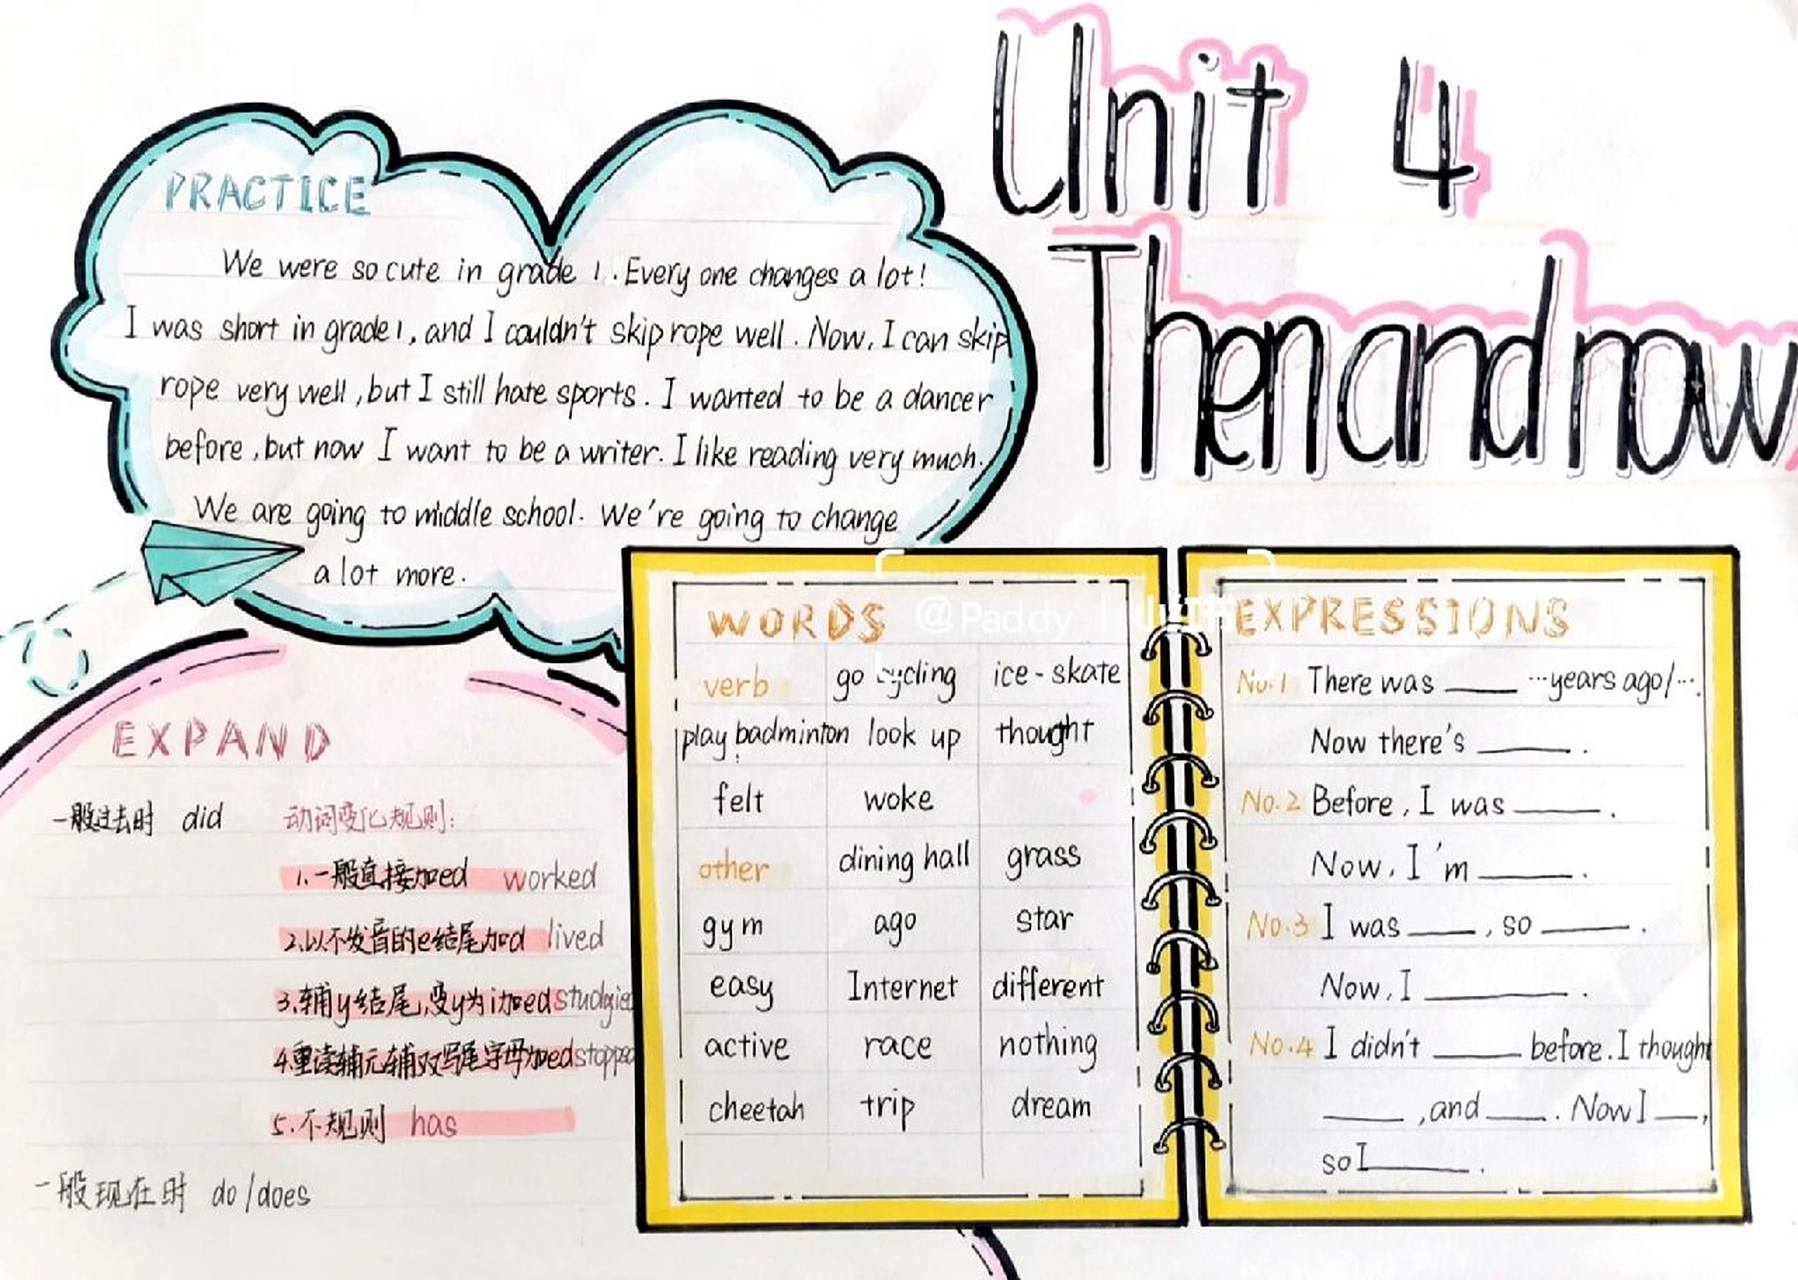 Unit 4
Then and now
PRACTICE
We were so cute in grade 1. Every one changes a lot!
I was short in grade 1, and I couldn't skip rope well. Now, I can skip
rope very well, but I still hate sports. I wanted to be a dancer
before, but now I want to be a writer. I like reading very much.
We are going to middle school. We're going to change
a lot more.
EXPAND
一般过去时 did 动词变化规则:
1.一般直接加ed worked
2.以不发音的e结尾加d lived
3.辅y结尾,变y为i加ed
4.重读辅元辅双写尾字母加ed
5.不规则 has
一般现在时 do/does
WORDS
@Paddy
verb go cycling ice-skate
play badminton look up thought
felt woke
other dining hall grass
gym ago star
easy Internet different
active race nothing
cheetah trip dream
EXPRESSIONS
No.1 There was ____ ...years ago/....
Now there's ____.
No.2 Before, I was ____.
Now, I'm ____.
No.3 I was ____, so ____.
Now, I ____.
No.4 I didn't ____ before. I thought
____, and ____. Now I ____,
so I ____.